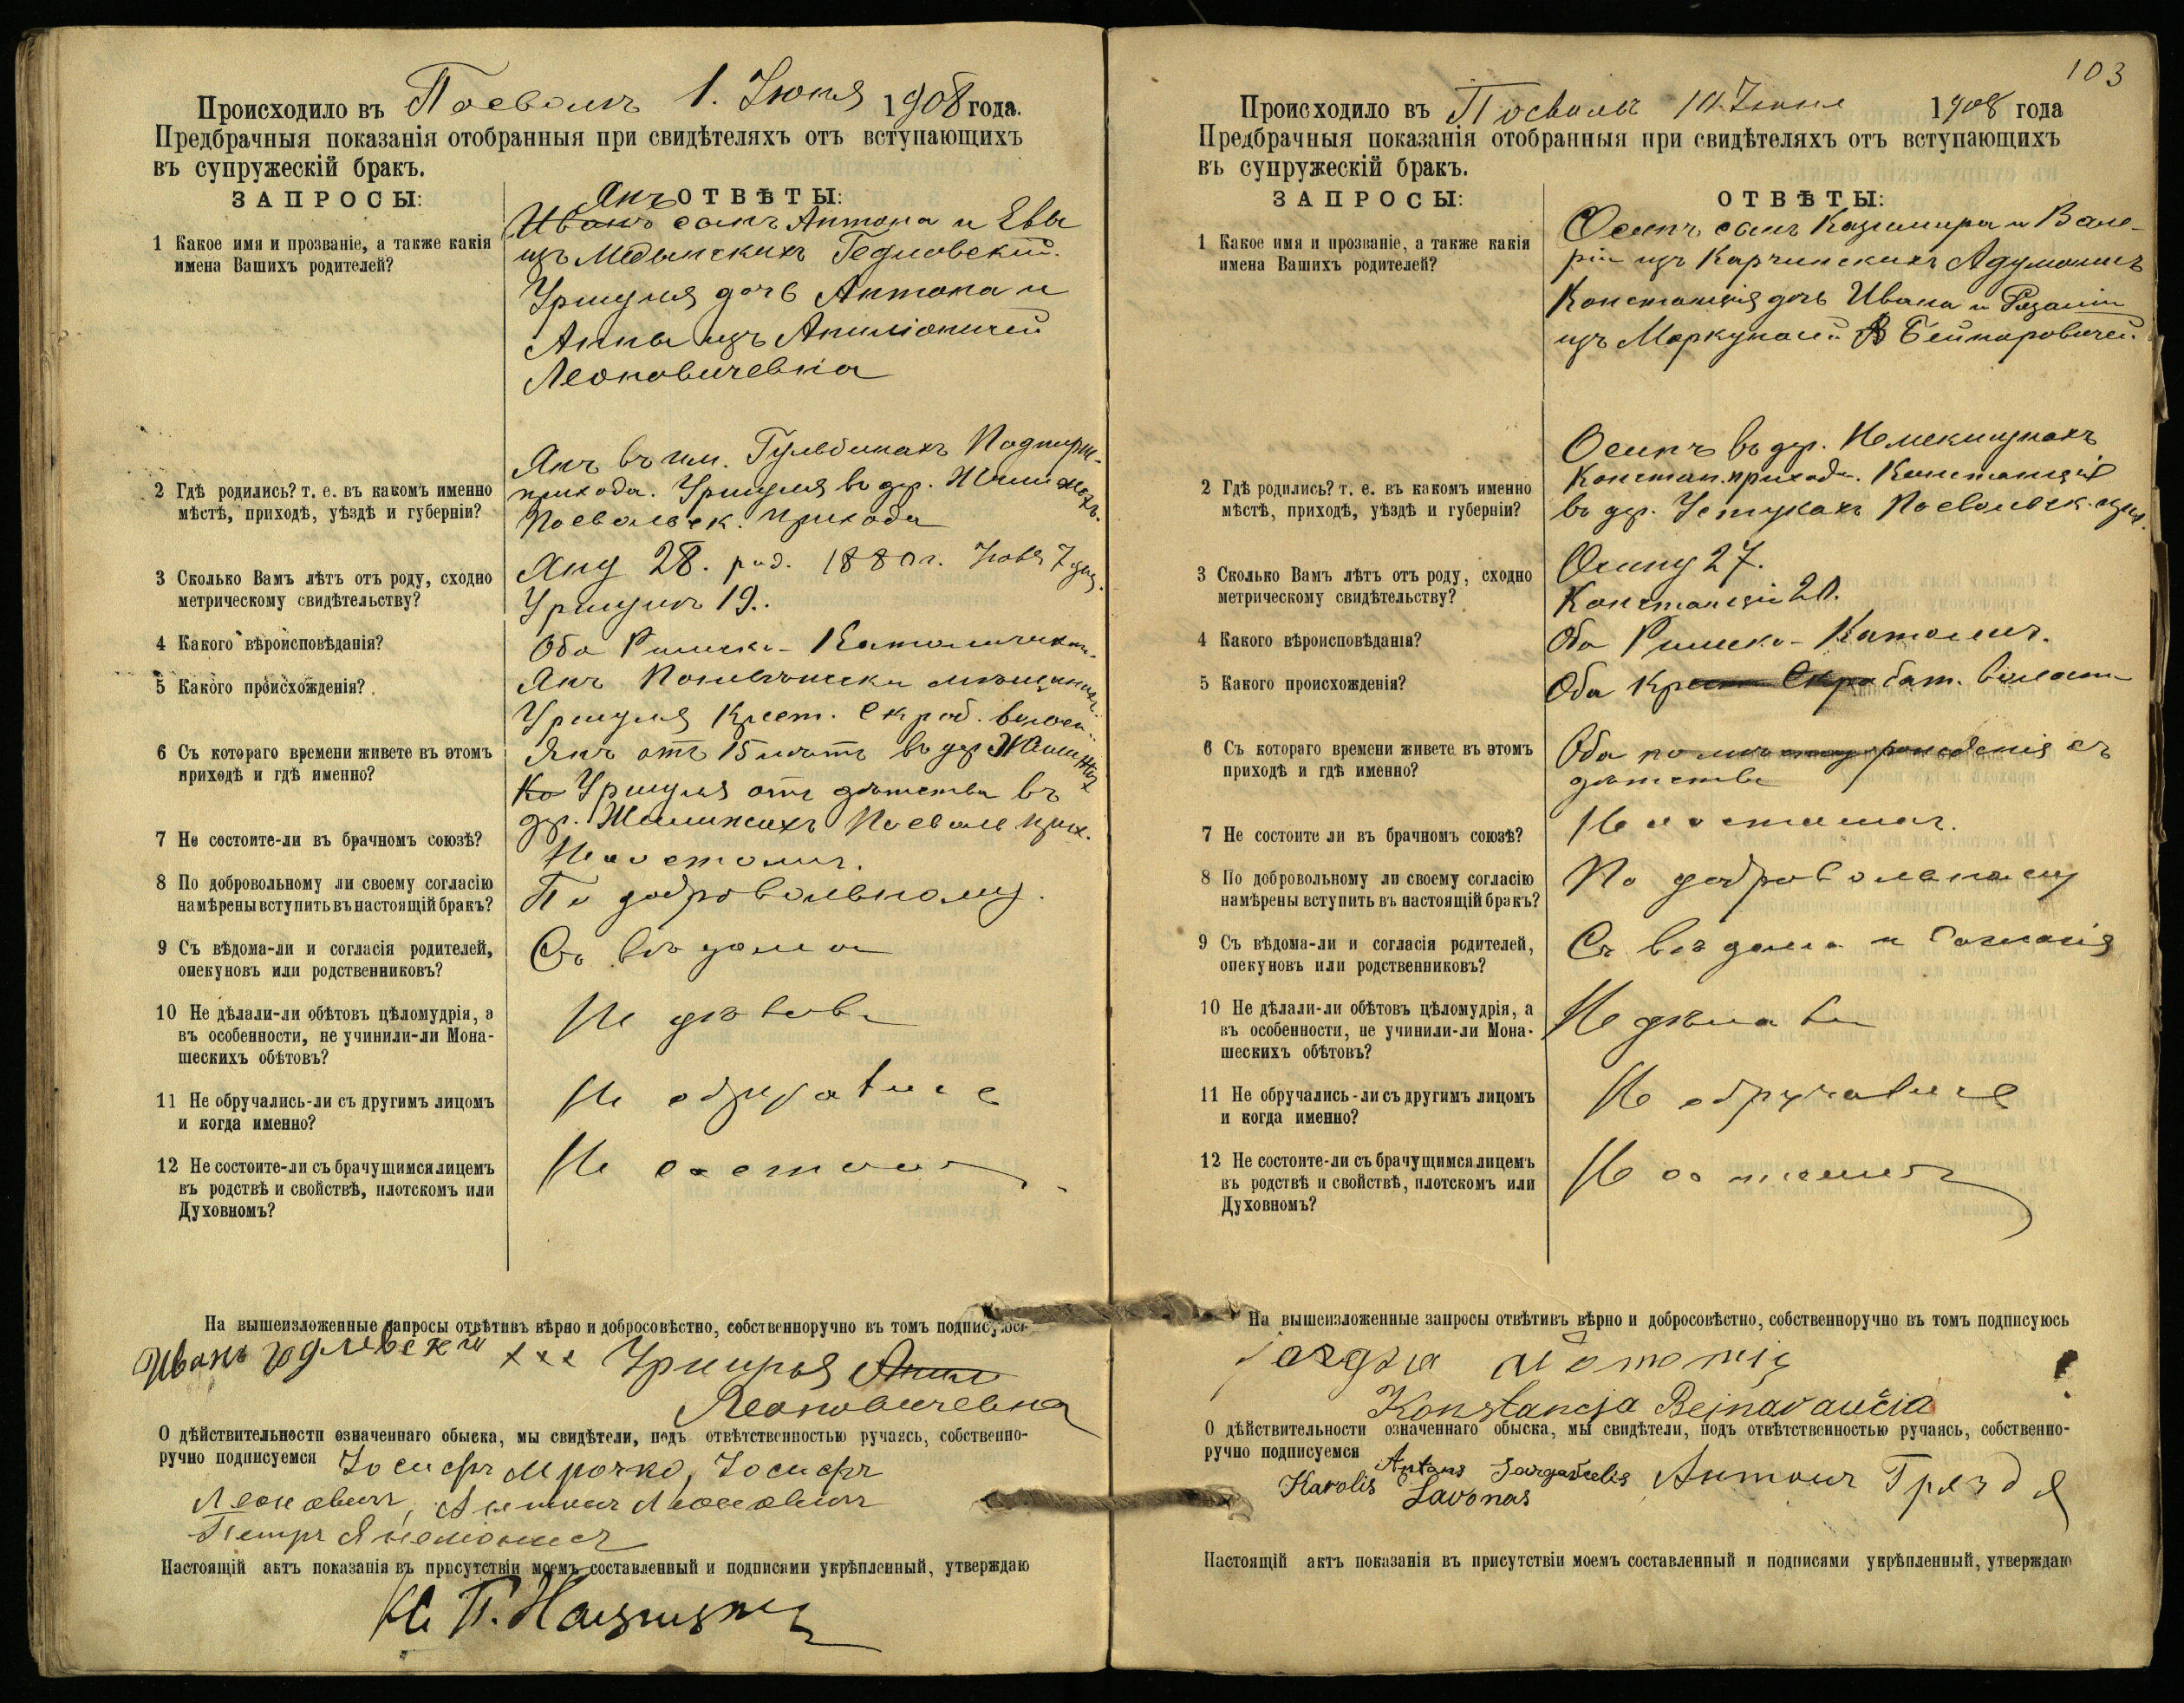 Происходило въ Посволѣ 1. Іюня 1908 года.
Предбрачныя показанія отобранныя при свидѣтеляхъ отъ вступающихъ
въ супружескій бракъ.
ЗАПРОСЫ:
ОТВѢТЫ:
1 Какое имя и прозваніе, а также какія
имена Вашихъ родителей?
Янъ
Иванъ сынъ Антона и Евы
изъ
Уршуля дочь Антона и
Анны изъ
Леоновичевна
2 Гдѣ родились? т. е. въ какомъ именно
мѣстѣ, приходѣ, уѣздѣ и губерніи?
Янъ въ им. Гульбинахъ
прихода. Уршуля въ дер.
Посвольск. прихода
3 Сколько Вамъ лѣтъ отъ роду, сходно
метрическому свидѣтельству?
Яну 28. род. 1880 г.
Уршулѣ 19.
4 Какого вѣроисповѣданія?
Оба Римско-Католическ.
5 Какого происхожденія?
Янъ
Уршуля Крест. Скроб. волос.
6 Съ котораго времени живете въ этомъ
приходѣ и гдѣ именно?
Янъ отъ 15 лѣтъ въ дер.
Уршуля отъ дѣтства въ
дер. Посволь прих.
7 Не состоите-ли въ брачномъ союзѣ?
Не состоимъ.
8 По добровольному ли своему согласію
намѣрены вступить въ настоящій бракъ?
По добровольному.
9 Съ вѣдома-ли и согласія родителей,
опекуновъ или родственниковъ?
Съ вѣдома
10 Не дѣлали-ли обѣтовъ цѣломудрія, а
въ особенности, не учинили-ли Мона-
шескихъ обѣтовъ?
Не
11 Не обручались-ли съ другимъ лицомъ
и когда именно?
Не
12 Не состоите-ли съ брачущимся лицемъ
въ родствѣ и свойствѣ, плотскомъ или
Духовномъ?
Не состоимъ
На вышеизложенные запросы отвѣтивъ вѣрно и добросовѣстно, собственноручно въ томъ подписуюсь
Иванъ Годлевскій ххх Уршуля
Леоновичевна
О дѣйствительности означеннаго обыска, мы свидѣтели, подъ отвѣтственностью ручаясь, собственно-
ручно подписуемся Іосифъ Мрочко, Іосифъ
Леоновичъ, Антонъ
Петръ
Настоящій актъ показанія въ присутствіи моемъ составленный и подписями укрѣпленный, утверждаю
103
Происходило въ Посволѣ Іюня 1908 года
Предбрачныя показанія отобранныя при свидѣтеляхъ отъ вступающихъ
въ супружескій бракъ.
ЗАПРОСЫ:
ОТВѢТЫ:
1 Какое имя и прозваніе, а также какія
имена Вашихъ родителей?
Осипъ сынъ Казимира и Вале-
ріи изъ Карчинскихъ
Констанція дочь Ивана и Розаліи
изъ
2 Гдѣ родились? т. е. въ какомъ именно
мѣстѣ, приходѣ, уѣздѣ и губерніи?
Осипъ въ дер.
Констан. прихода. Констанція
въ дер. Устукахъ Посвольск. прих.
3 Сколько Вамъ лѣтъ отъ роду, сходно
метрическому свидѣтельству?
Осипу 27.
Констанціи 20.
4 Какого вѣроисповѣданія?
Оба Римско-Католич.
5 Какого происхожденія?
Оба волости
6 Съ котораго времени живете въ этомъ
приходѣ и гдѣ именно?
Оба съ
дѣтства
7 Не состоите ли въ брачномъ союзѣ?
Не состоимъ.
8 По добровольному ли своему согласію
намѣрены вступить въ настоящій бракъ?
По добровольному
9 Съ вѣдома-ли и согласія родителей,
опекуновъ или родственниковъ?
Съ вѣдома и согласія
10 Не дѣлали-ли обѣтовъ цѣломудрія, а
въ особенности, не учинили-ли Мона-
шескихъ обѣтовъ?
Не дѣлали
11 Не обручались-ли съ другимъ лицомъ
и когда именно?
Не обручались
12 Не состоите-ли съ брачущимся лицемъ
въ родствѣ и свойствѣ, плотскомъ или
Духовномъ?
Не состоимъ
На вышеизложенные запросы отвѣтивъ вѣрно и добросовѣстно, собственноручно въ томъ подписуюсь
Konstancja Bejnaravučia
О дѣйствительности означеннаго обыска, мы свидѣтели, подъ отвѣтственностью ручаясь, собственно-
ручно подписуемся
Antans
Karolis Lavonas Антонъ
Настоящій актъ показанія въ присутствіи моемъ составленный и подписями укрѣпленный, утверждаю